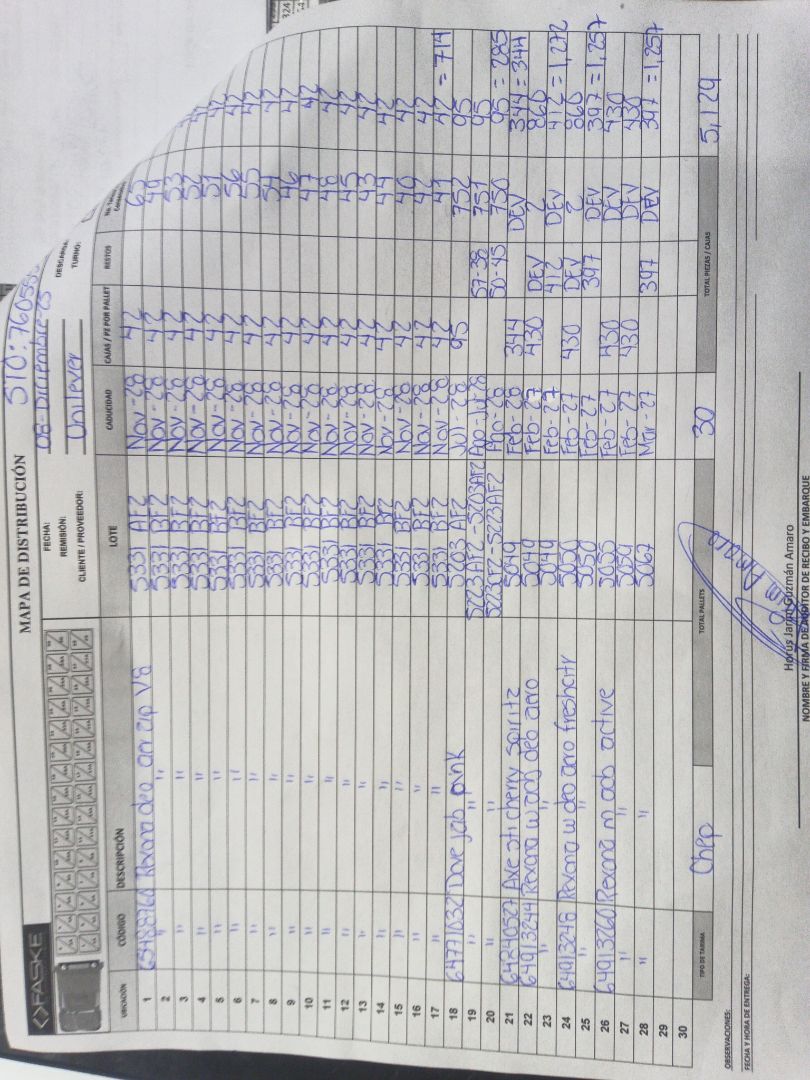 MAPA DE DISTRIBUCIÓN
FASKE
STO: 760558
FECHA: 08-Diciembre-25
DESCARGA:
REMISIÓN:
TURNO:
CLIENTE / PROVEEDOR: Unilever
UBICACIÓN CÓDIGO DESCRIPCIÓN LOTE CADUCIDAD CAJAS / PZ POR PALLET RESTOS
1 65488760 Rexona deo aer clp V8 5331 AF2 Nov-28 42 65
2 " " 5331 BF2 Nov-28 42 49
3 " " 5331 BF2 Nov-28 42 53
4 " " 5331 BF2 Nov-28 42 52 42
5 " " 5331 BF2 Nov-28 42 51 42
6 " " 5331 BF2 Nov-28 42 56 42
7 " " 5331 BF2 Nov-28 42 55 42
8 " " 5331 BF2 Nov-28 42 54 42
9 " " 5331 BF2 Nov-28 42 46 42
10 " " 5331 BF2 Nov-28 42 47 42
11 " " 5331 BF2 Nov-28 42 48 42
12 " " 5331 BF2 Nov-28 42 45 42
13 " " 5331 BF2 Nov-28 42 43 42
14 " " 5331 BF2 Nov-28 42 44 42
15 " " 5331 BF2 Nov-28 42 40 42
16 " " 5331 BF2 Nov-28 42 42 42
17 " " 5331 BF2 Nov-28 42 41 42 = 714
18 64771032 Dove jab pink 5203 AF2 Jul-28 95 752 95
19 " " 5223AF2-5203AF2 Ago-Jul-28 57-38 751 95
20 " " 5230F2-5223AF2 Ago-28 50-45 750 95 = 285
21 64840527 Axe sti cherry Spiritz 5049 Feb-28 344 DEV 344 = 344
22 64913244 Rexona w aads deo aero 5049 Feb-27 430 DEV 2 860
23 " " 5049 Feb-27 412 DEV 412 = 1,272
24 64913248 Rexona w deo aero freshcitr 5050 Feb-27 430 DEV 2 860
25 " " 5050 Feb-27 397 DEV 397 = 1,257
26 64913260 Rexona m aab active 5055 Feb-27 430 DEV 430
27 " " 5059 Feb-27 430 DEV 430
28 " " 5062 Mar-27 397 DEV 397 = 1,257
29
30
TIPO DE TARIMA Chep TOTAL PALLETS 30 TOTAL PIEZAS / CAJAS 5,129
OBSERVACIONES:
FECHA Y HORA DE ENTREGA:
Horus Jarim Guzmán Amaro
NOMBRE Y FIRMA DE AUDITOR DE RECIBO Y EMBARQUE